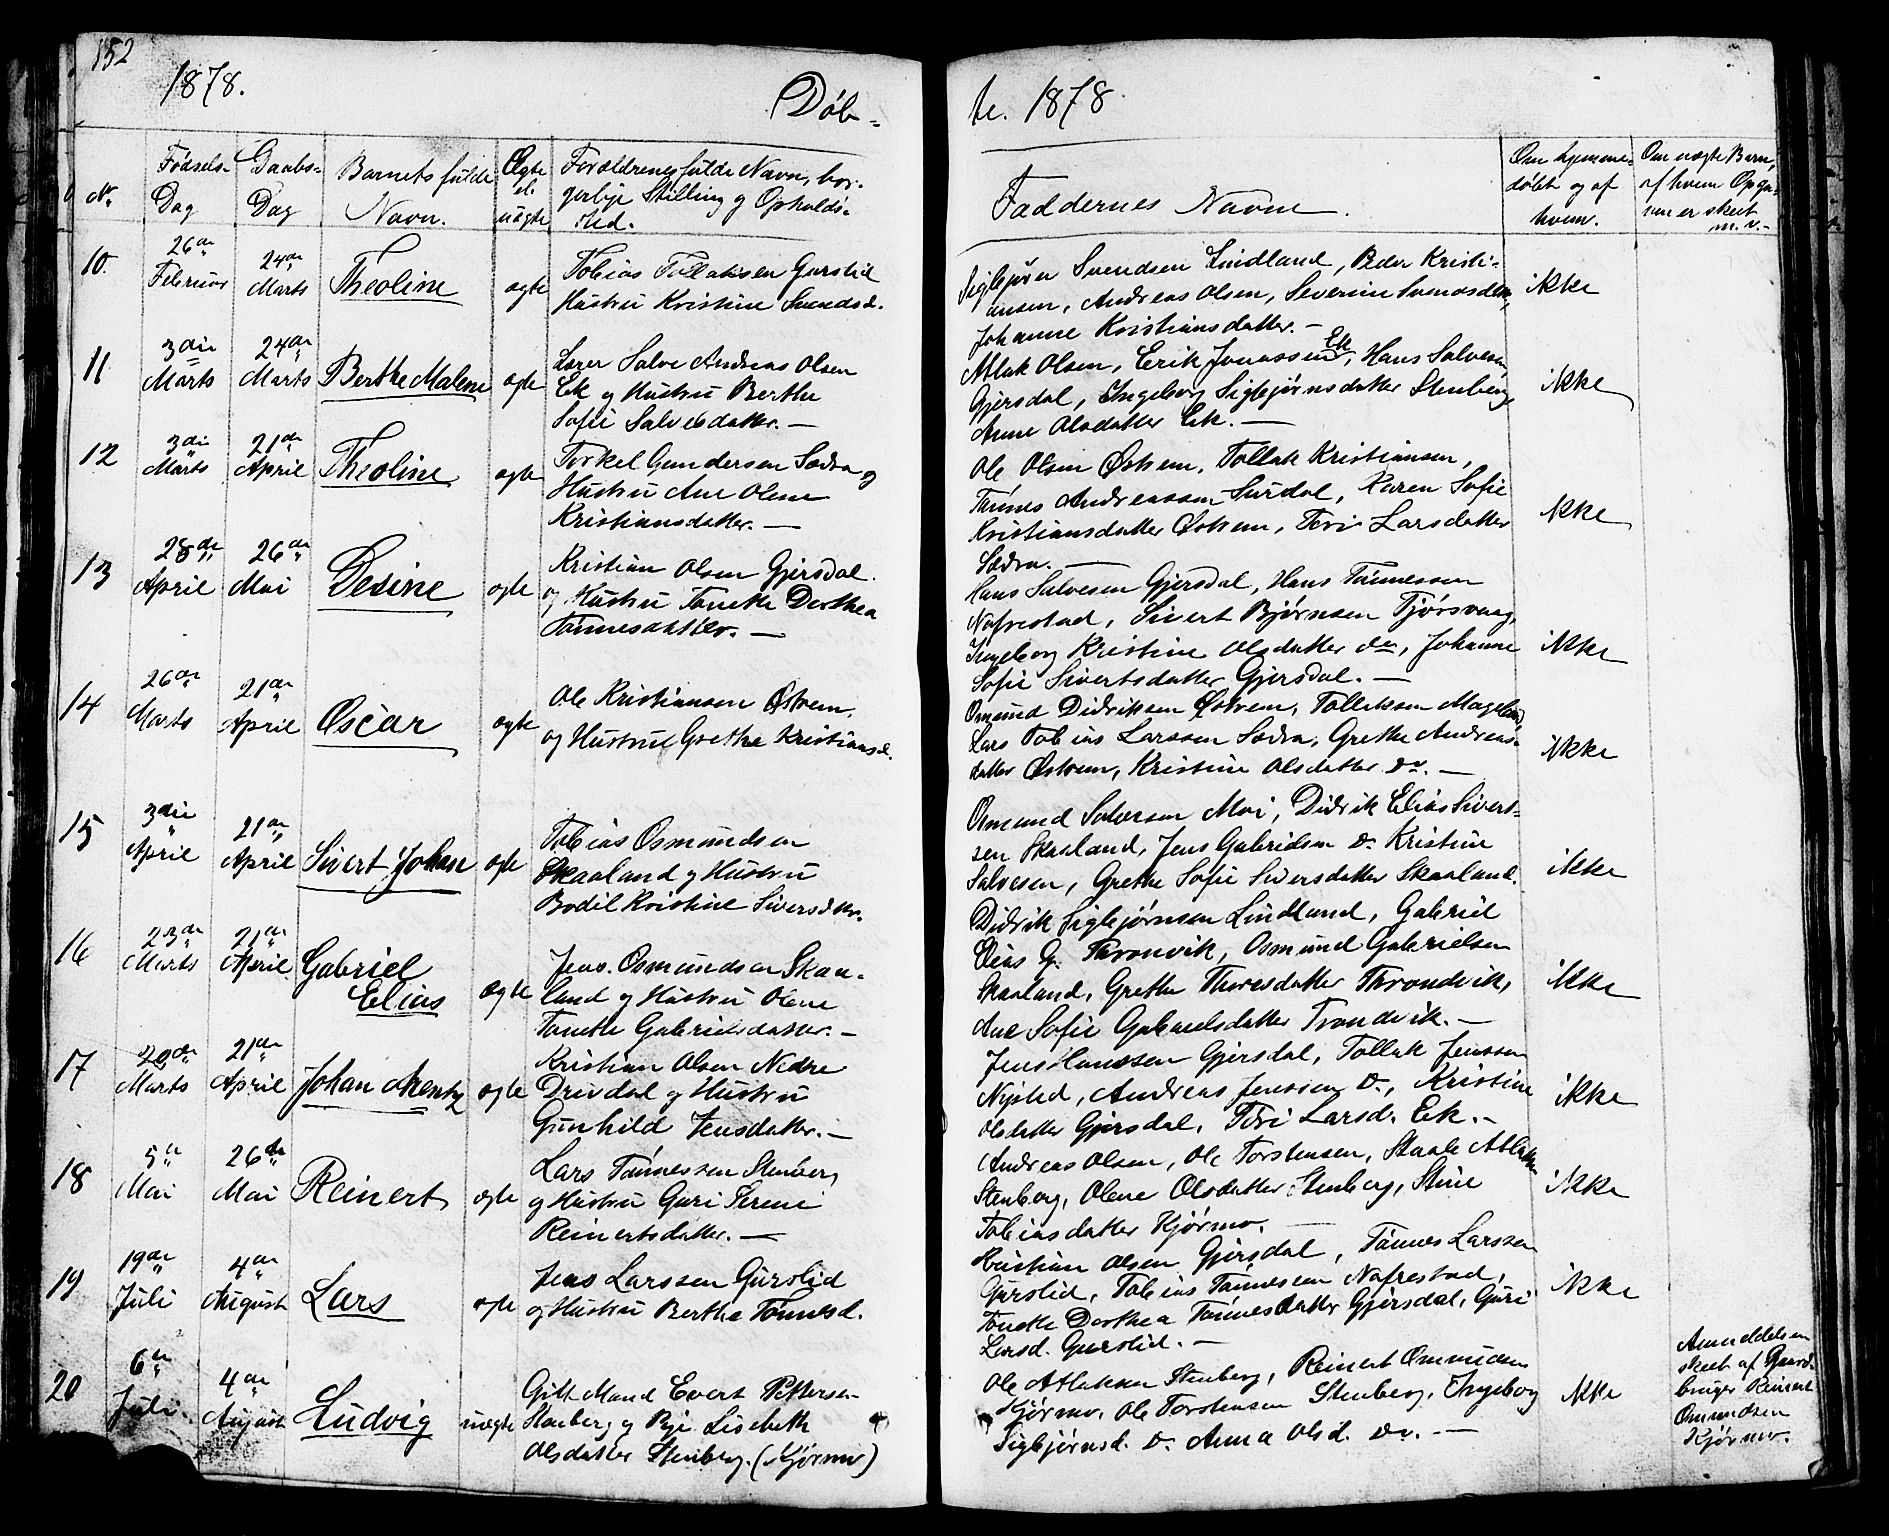 152
1878.
Döb-
te. 1878.
No.
Fødsels-
Dag
Daabs-
Dag
Barnets fulde
Navn.
Ægte
el.
uægte
Forældrenes fulde Navn, bor-
gerlige Stilling og Opholds-
sted.
Faddernes Navne.
Om hjemme-
døbt og af
hvem.
Om uægte Barn,
af hvem Opga-
ven er skeet
m. v.-
10.
26de
Februar
24de
Marts
Theoline
ægte
Tobias Tollaksen Gurslid
Hustru Kristine Svendsd.
Siglejørn Svendsen Lindland, Peder Kristi-
ansen, Andreas Olsen, Severine Svendsdtr,
Johanne Kristiansdatter. -
ikke
11
3die
Marts
24de
Marts
Berthe Malene
ægte
Lærer Salve Andreas Olsen
Ek og Hustru Berthe
Sofie Salvesdatter. -
Atlak Olsen, Erik Jonassen Ek, Hans Salvesen
Gjersdal, Ingeborg Siglejørnsdatter Stenberg,
Anne Olsdatter Ek. -
ikke
12
3die
Marts
21de
April
Theoline
ægte
Torkel Gundersen Sædra og
Hustru Ane Olene
Kristiansdatter. -
Ole Olsen Østrem, Tollak Kristiansen,
Tønnes Andreassen Surdal, Karen Sofie
Kristiansdatter Østrem, Teri Larsdatter
Sædra. -
ikke
13
28de
April
26de
Mai
Desine
ægte
Kristian Olsen Gjersdal
og Hustru Tonette Dorthea
Tønnesdatter. -
Hans Salvesen Gjersdal, Hans Tønnessen
Nafrestad, Sivert Bjørnsen Tjørsvaag,
Ingeborg Kristine Olsdatter do, Johanne
Sofie Sivertsdatter Gjersdal. -
ikke
14
26de
Marts
21de
April
Oscar
ægte
Ole Kristiansen Østrem,
og Hustrue Grethe Kristiansd.
Omund Didriksen Østrem, Tolleksen Mageland,
Lars Tobias Larssen Sædra, Grethe Andreas-
datter Østrem, Kristine Olsdatter do. -
ikke
15
3die
April
21de
April
Sivert Johan
ægte
Tobias Osmundsen
Skaaland og Hustru
Bodil Kristine Siversdtr.
Osmund Salvesen Moi, Didrik Elias Sivert-
sen Skaaland, Jens Gabrielsen do. Kristine
Salvesen, Grethe Sofie Siversdatter Skaaland.
ikke
16
23de
Marts
21de
April
Gabriel
Elias
ægte
Jens. Osmundsen Skaa-
land og Hustru Olene
Tonette Gabrielsdatter. -
Didrik Siglejørnsen Lindland, Gabriel
Elias G. Thronvik, Osmund Gabrielsen
Skaaland, Grethe Thoresdatter Throndvik,
Ane Sofie Gabrielsdatter Trondvik. -
ikke
17
29de
Marts
21de
April
Johan Mentz
ægte
Kristian Olsen Nedre
Drivdal og Hustru
Gunhild Jensdatter. -
Jens Hanssen Gjersdal, Tollak Jenssen
Nysted, Andreas Jenssen do., Kristine
Olsdatter Gjersdal, Teri Larsd. Ek. -
ikke
18
5te
Mai
26de
Mai
Reinert
ægte
Lars Tønnessen Stenberg
og Hustru Guri Serene
Reinertsdatter. -
Andreas Olsen, Ole Torstensen, Staale Atlaksen
Stenberg, Olene Olsdatter Stenberg, Stine
Tobiasdatter Kjørmo. -
ikke
19
19de
Juli
4de
August
Lars
ægte
Jens Larssen Gurslid
og Hustru Berthe Tønnesd.
Kristian Olsen Gjersdal, Tønnes Larssen
Gurslid, Tobias Tønnessen Nafrestad,
Tonette Dorthea Tønnesdatter Gjersdal, Guri
Larsd. Gurslid. -
ikke
20
6te
Juli
4de
August
Ludvig
uægte
Gift Mand Evert Pettersen
Stenberg og Pige Lisebeth
Olsdatter Stenberg. (Kjørmo)
Ole Atlaksen Stenberg, Reinert Ommundsen
Kjørmo, Ole Torstensen Stenberg, Ingeborg
Siglejørnsd. do. Anna Olsd. do. -
ikke
Anmeldelsen
skeet af Gaard-
bruger Reinert
Ommundsen
Kjørmo.